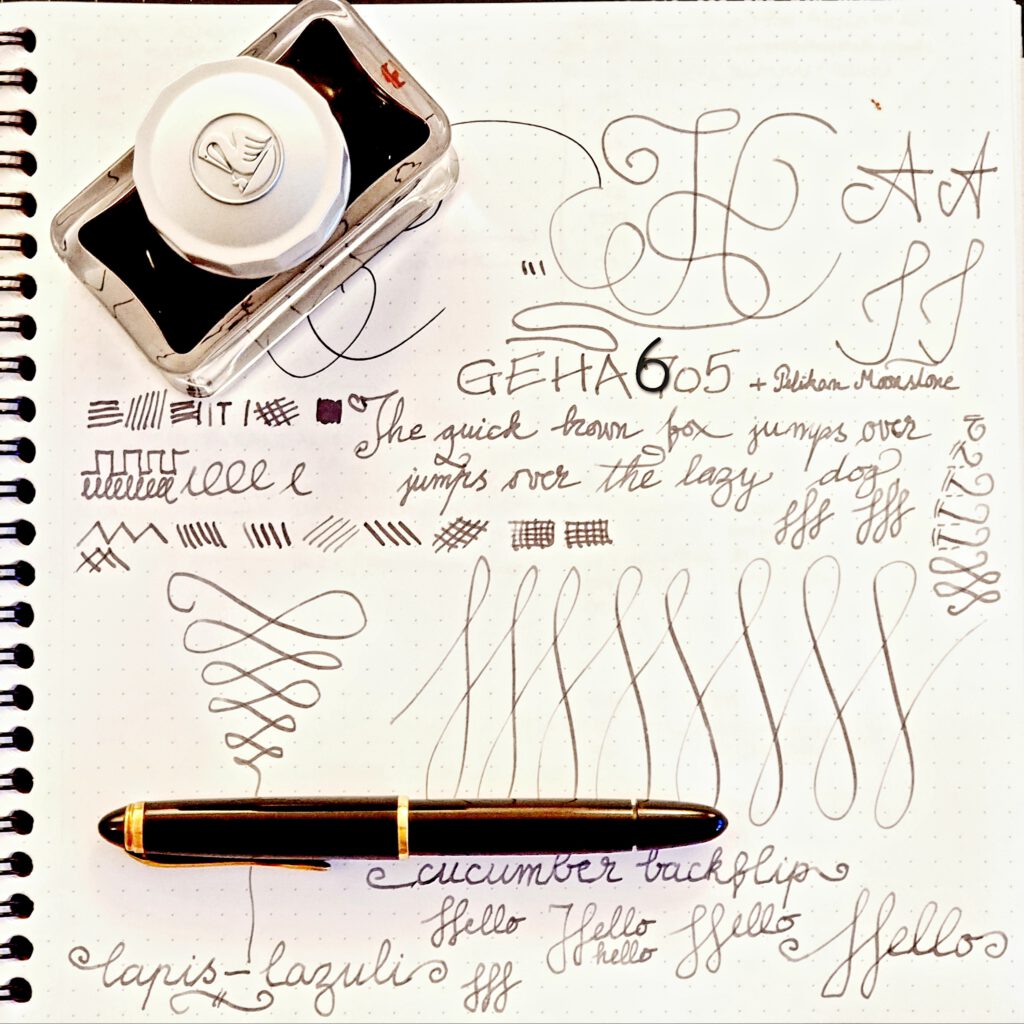 H A A
GEHA 605 + Pelikan Moonstone
The quick brown fox jumps over
jumps over the lazy dog
cucumber backflip
Hello Hello Hello Hello
hello
lapis-lazuli